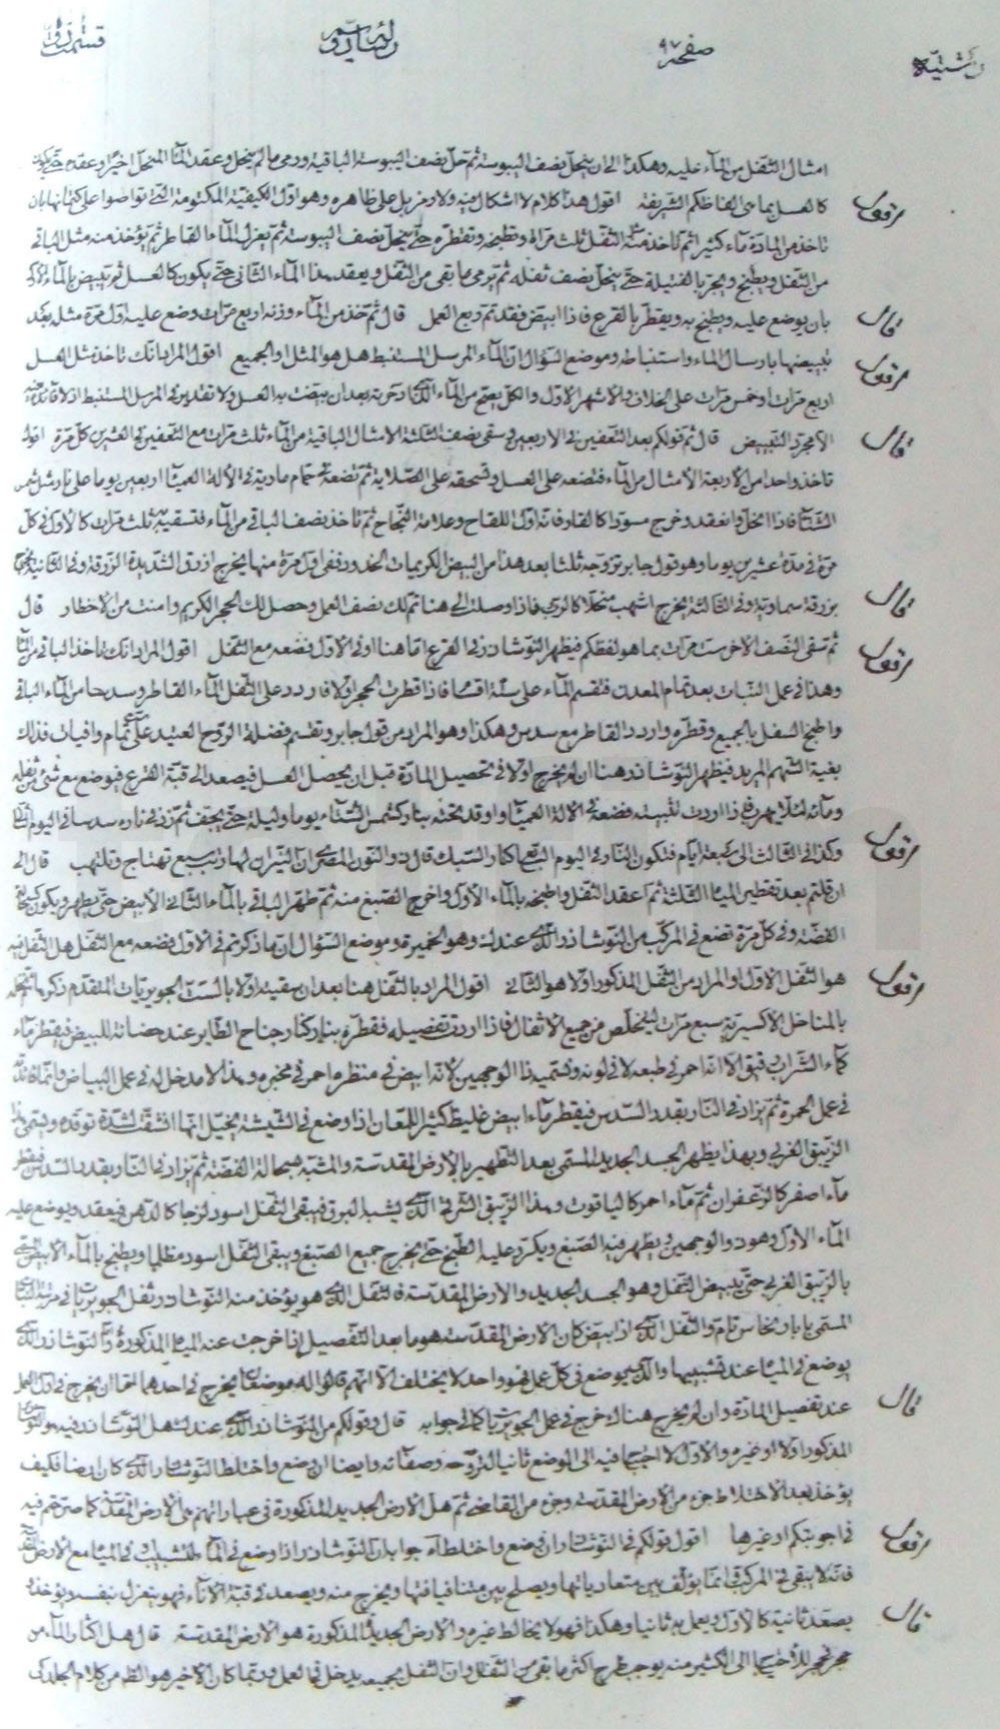 رشتيه صفحه ٩٧ رساله
امثال الثفل من الماء عليه وهكذا الى ان ينحل نصف اليبوسة ثم حل نصف اليبوسة الباقية ورمى ما لم ينحل وعقد الماء المنحل اخيرا وعقده حتى يكون
كالعسل بما هى الفاظكم الشريفة اقول هذا كلام لا اشكال فيه ولا رمز بل على ظاهره وهو اول الكيفية المكتومة التى تواصوا على كتمانها بان
تاخذ من المادة ماء كثيرا ثم تاخذ منه على الثفل ثلث مرات وتطبخه وتقطره حتى ينحل نصف اليبوسة ثم يعزل الماء القاطر ثم يؤخذ منه مثل الباقى
من الثفل ويطبخ ويجر بالفتيلة حتى ينحل نصف ثفله ثم يرمى ما بقى من الثفل ويعقد هذا الماء الثانى حتى يكون كالعسل ثم يبيض بالماء
بان يوضع عليه ويطبخ به ويقطر بالقرع فاذا ابيض فقد تم ربع العمل قال ثم خذ من الماء وزنه اربع مرات وضع عليه اول مرة مثله بعد
تبييضها بارسال الماء واستنباطه وموضع السؤال ان الماء المرسل المستنبط هل هو المثل او الجميع اقول المراد انك تاخذ مثل العسل
اربع مرات او خمس مرات على الخلاف والاشهر الاول والكل يصح من الماء الذى ادخرته بعد ان بيضت به العسل ولا تقدير فى المرسل المستنبط اذ لا فائدة منه
الا مجرد التبييض قال ثم قولكم بعد التعفين فى الاربعين وسقى بنصف الثلثة الامثال الباقية من الماء ثلث مرات مع التعفين فى العشرين كل مرة اقول
تاخذ واحدا من الاربعة الامثال من الماء فتضعه على العسل وتسحقه على الصلاية ثم تضعه فى حمام مارية فى الآلة العمياء اربعين يوما على نار شمس
الشتاء فاذا انحل وانعقد وخرج مسودا كالقار فانه اول اللقاح وعلامة النجاح ثم تاخذ نصف الباقى من الماء فتسقيه به ثلث مرات كالاول فى كل
مرة فى مدة عشرين يوما وهو قول جابر تزوجه ثلثا بعد هذا من البيض الكريمات الخدور ففى اول مرة منها يخرج ازرق الشديد الزرقة وفى الثانية
بزرقة سماوية وفى الثالثة يخرج اشهب منحلا كالروب فاذا وصلت الى هنا تم لك نصف العمل وحصل لك الحجر الكريم وامنت من الاخطار قال
ثم تسقى النصف الاخر ست مرات بما هو لفظكم فيظهر النوشاذر فى القرع اما هنا او فى الاول فضعه مع الثفل اقول المراد انك تاخذ الباقى من الماء
وهذا فى عمل النبات بعد تمام المعدن فتقسم الماء على ستة اقسام فاذا قطرت الحجر اولا فاردد على الثفل الماء القاطر وسدسا من الماء الباقى
واطبخ السفل بالجميع وقطره واردد القاطر مع سدس وهكذا وهو المراد من قول جابر وتقسم فضلة الروح العتيد على تمام وافيات فذلك
بغية الشهم المريد فيظهر النوشاذر هنا ان لم يخرج اولا فى تحصيل المادة قبل ان يحصل العسل فيصعد الى قبة القرع فيوضع مع شئ من ثفله
ومائه لئلا يهرب فاذا اردت تثبيته فضعه فى الآلة العمياء واوقد تحته بنار كشمس الشتاء يوما وليلة حتى يجف ثم زد فى ناره سدسا فى اليوم الثانى
وكذا فى الثالث الى سبعة ايام فتكون النار فى اليوم السابع كنار السبك قال ذو النون المصرى ان النيران لها ترتيب سبع تهتاج وتلتهب قال
ان قلتم بعد تقطير المياه الثلثة ثم اعقد الثفل واطبخه بالماء الاول واخرج الصبغ منه ثم طهر الباقى بالماء الثانى الابيض حتى يطهر ويكون كسحالة
الفضة وفى كل مرة تضع فى المركب من النوشاذر الذى عندك وهو الخميرة وموضع السؤال ان ما ذكرتم فى الاول فضعه مع الثفل هل الثفل فيه
هو الثفل الاول او المراد من الثفل المذكور اولا هو الثانى اقول المراد بالثفل هنا بعد ان سقيته اولا بالست الجويريات المتقدم ذكرها
بالمناخل الاكسيرية سبع مرات ليتخلص من جميع الاثفال فاذا اردت تفصيله فقطره بنار كنار جناح الطاير عند حضانته للبيض فيقطر ماء
كماء الشراب رقيق الا انه احمر فى طبعه لا فى لونه وتسميه ذا الوجهين لانه ابيض فى منظره احمر فى مخبره وهذا لا مدخل له فى عمل البياض وانما فائدته
فى عمل الحمرة ثم يزاد فى النار بقدر السدس فيقطر ماء ابيض غليظ كثير اللمعان اذا وضع فى الشيشة يخيل انها انشقت لشدة توقده ويسمى هذا
الزيبق الغربى وبهذا يظهر الجسد الجديد المسمى بعد التطهير بالارض المقدسة والمشبه بسحالة الفضة ثم يزاد فى النار بقدر السدس فيقطر
ماء اصفر كالزعفران ثم ماء احمر كالياقوت وهذا الزيبق الشرقى الذى يشبه البرق فيبقى الثفل اسود لزجا كالدهن فيعقد ويوضع عليه
الماء الاول وهو ذو الوجهين ويطهر فيه الصبغ ويكرر عليه الطبخ حتى يخرج جميع الصبغ ويبقى الثفل اسود مظلما ويطبخ بالماء الابيض
بالزيبق الغربى حتى يبيض الثفل وهو الجسد الجديد والارض المقدسة فالثفل الذى هو يؤخذ منه النوشاذر ثفل الجويريات فى مرتبة النبات
المسمى بابار نحاس تام والثفل الذى اذا ابيض كان الارض المقدسة هو ما بعد التفصيل اذا خرجت عنه المياه المذكورة والنوشاذر الذى
يوضع فى المياه عند تشبيبها والذى يوضع فى كل عمل فهو واحد لا يختلف الا انهم قالوا له موضعان يخرج فى احدهما اما ان يخرج فى اول العمل
عند تفصيل المادة وان لم يخرج هناك خرج فى عمل الجويريات كما فى جوابه قال وقولكم من النوشاذر الذى عندك هل النوشاذر فيه هو النوشاذر
المذكور اولا او غيره والاول لا احتياج فيه الى الوضع ثانيا لتروحه وصفائه وايضا ان وضع واختلط النوشاذر الذى كان ارضا فكيف
يؤخذ بعد الاختلاط جزء من الارض المقدسة وجزء من القاضى ثم هل الارض الجديدة المذكورة فى عباراتهم هى الارض المقدسة كما صرحتم فيه
فى اجوبتكم او غيرها اقول قولكم فى النوشاذر ان وضع واختلط آه جوابه ان النوشاذر اذا وضع فى الماء للتشبيب وفى المياه مع الارض المقدسة
فانه لا يبقى فى المركب وانما يؤلف بين متعادياتها ويصلح بين متنافياتها ويخرج منه ويصعد فى قبة الاناء فهو يعزل بنفسه ويؤخذ و
يصعد ثانية كالاول ويعمل به ثانيا وهكذا فهو لا يخالط غيره والارض الجديدة المذكورة هو الارض المقدسة قال هل اكثار الماء من
حجر غير للاحتياج الى الكثير منه يوجب طرح اكثر ما بقى من الثفل وان الثفل بجميعه يدخل فى العمل وربما كان الاخير هو الظاهر من كلام الجلدكى
اقول
قال
اقول
قال
قال
اقول
اقول
اقول
قال
اقول
قال